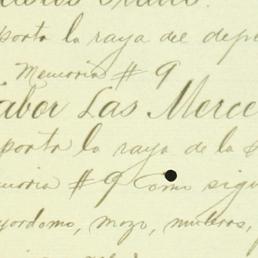 porta la raya del depe
Memoria # 9
abor Las Merce
porta la raya de la
emoria # 9 Como sigu
yordomo, mozo, muleros,